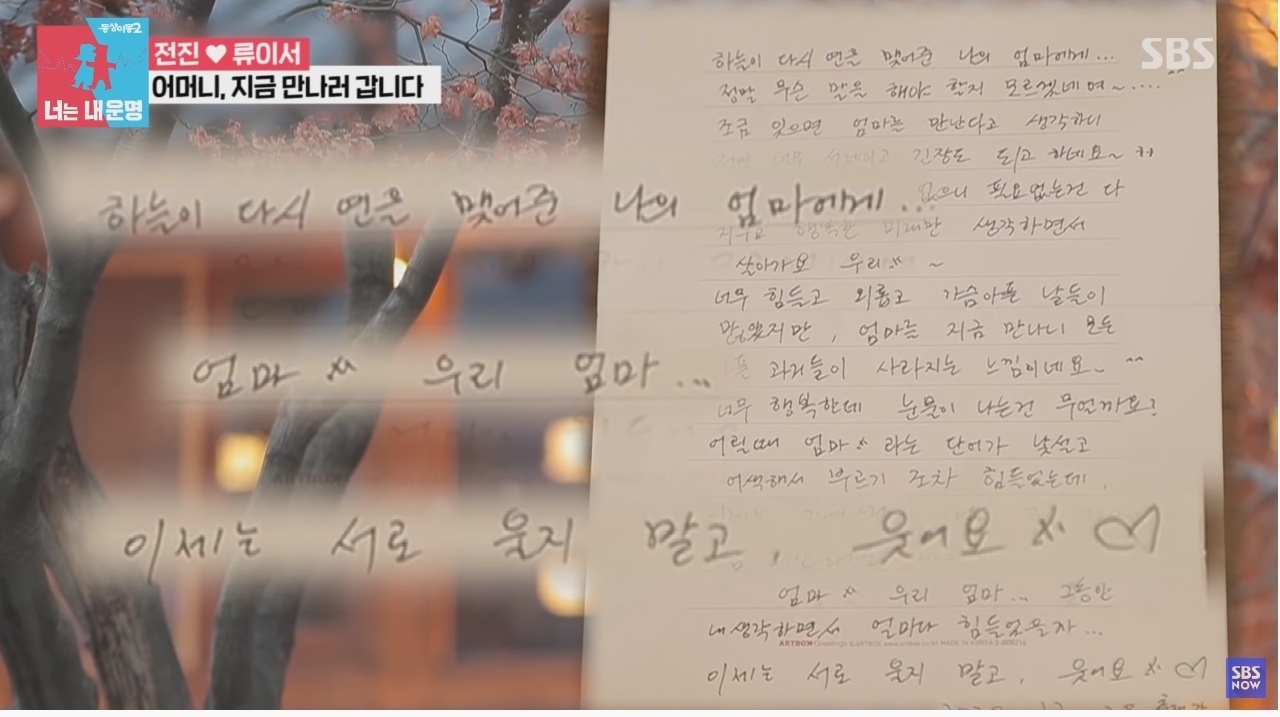 동상이몽2
너는 내 운명
전진 ♥ 류이서
어머니, 지금 만나러 갑니다
SBS
하늘이 다시 연을 맺어준 나의 엄마에게...
엄마^^ 우리 엄마...
이제는 서로 울지 말고, 웃어요^^ ♡
하늘이 다시 연을 맺어준 나의 엄마에게...
정말 무슨 말을 해야 할지 모르겠네여~.... ^^
조금 있으면 엄마를 만난다고 생각하니
정말 너무 설레이고 긴장도 되고 하네요~ ㅋㅋ
없으니 필요없는건 다
지우고 행복한 미래만 생각하면서
살아가요 우리^^ ~
너무 힘들고 외롭고 가슴아픈 날들이
많았지만, 엄마를 지금 만나니 모든
아픈 과거들이 사라지는 느낌이네요~ ^^
너무 행복한데 눈물이 나는건 무언까요?
어릴때 엄마^^ 라는 단어가 낯설고
어색해서 부르기 조차 힘들었는데,
엄마^^ 우리 엄마... 그동안
내생각하면서 얼마다 힘들었을지...
ARTBOX Greetings ⓒARTBOX www.artbox.co.kr MADE IN KOREA
이제는 서로 울지 말고, 웃어요^^ ♡
SBS
NOW